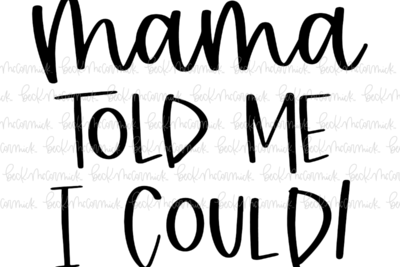 mama
TOLD ME
I COULD!